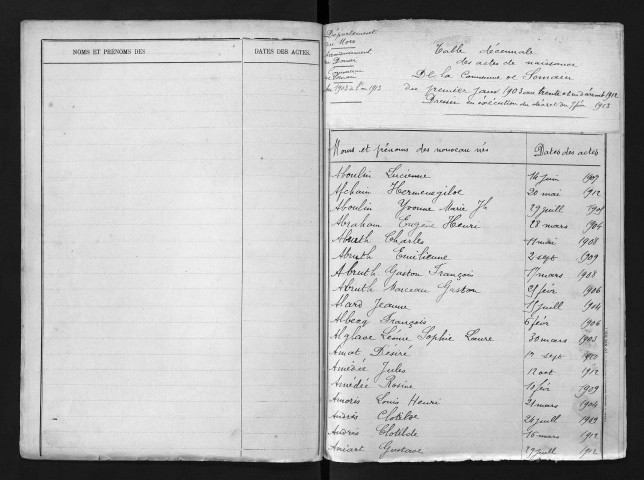 NOMS ET PRÉNOMS DES
DATES DES ACTES.
Département
du Nord
Arrondissement
de Douai
Commune
de Somain
1903 à l'an 1913
Table décennale
des actes de naissance
De la Commune de Somain
du premier janv 1903 au trente et un décemb 1912
Dressée en exécution du décret du 1913
Noms et prénoms des nouveau nés Dates des actes
Aboulin Lucienne 14 juin 1907
Afchain Hermenegilde 20 mai 1912
Aboulin Yvonne Marie Jh 29 juill 1908
Abraham Eugène Henri 28 mars 1904
Abruth Charles 11 mai 1908
Abruth Emilienne 2 sept 1909
Abruth Gaston François 17 mars 1908
Abruth Marceau Gaston 25 fév 1906
Alard Jeanne 15 juill 1904
Albecq François 6 fév 1906
Alglave Léonie Sophie Laure 30 mars 1903
Amat Désiré sept 1910
Amédée Jules 12 oct 1912
Amédée Rosine 10 fév 1909
Amorès Louis Henri 21 mars 1904
Andrès Clotilde 24 juill 1909
Andrès Clotilde 15 mars 1912
Aniart Gustave 29 juill 1912